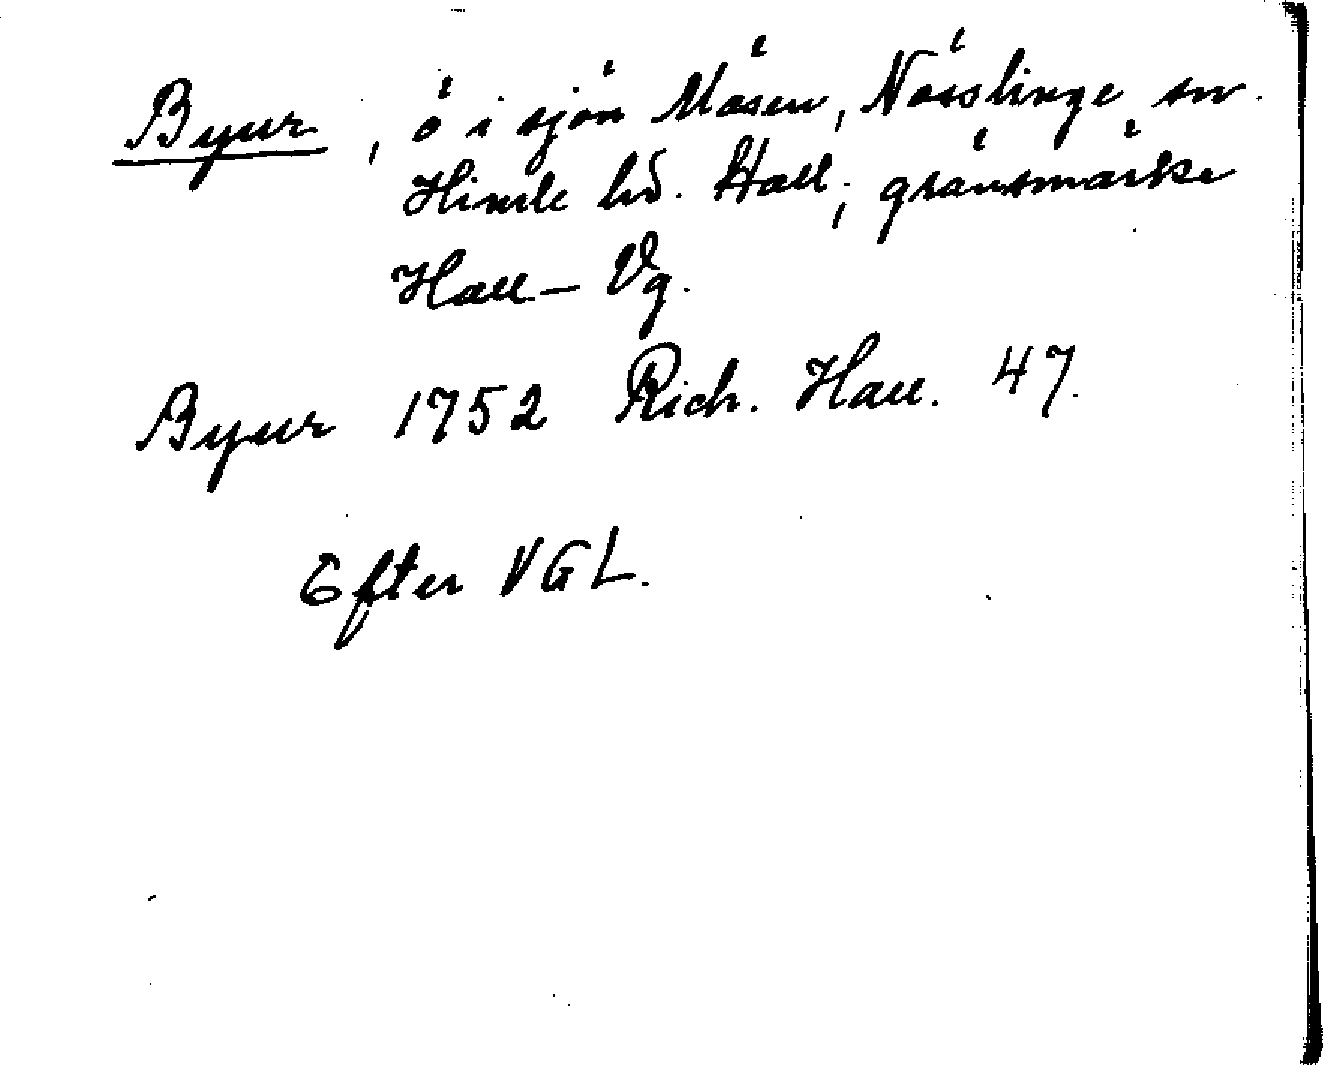 Byur, ö i sjön Mäsen, Nösslinge sn.
Himle hd. Hall; gränsmärke
Hall – Vg.
Byur 1752 Rich. Hall. 47.
Efter VGL.